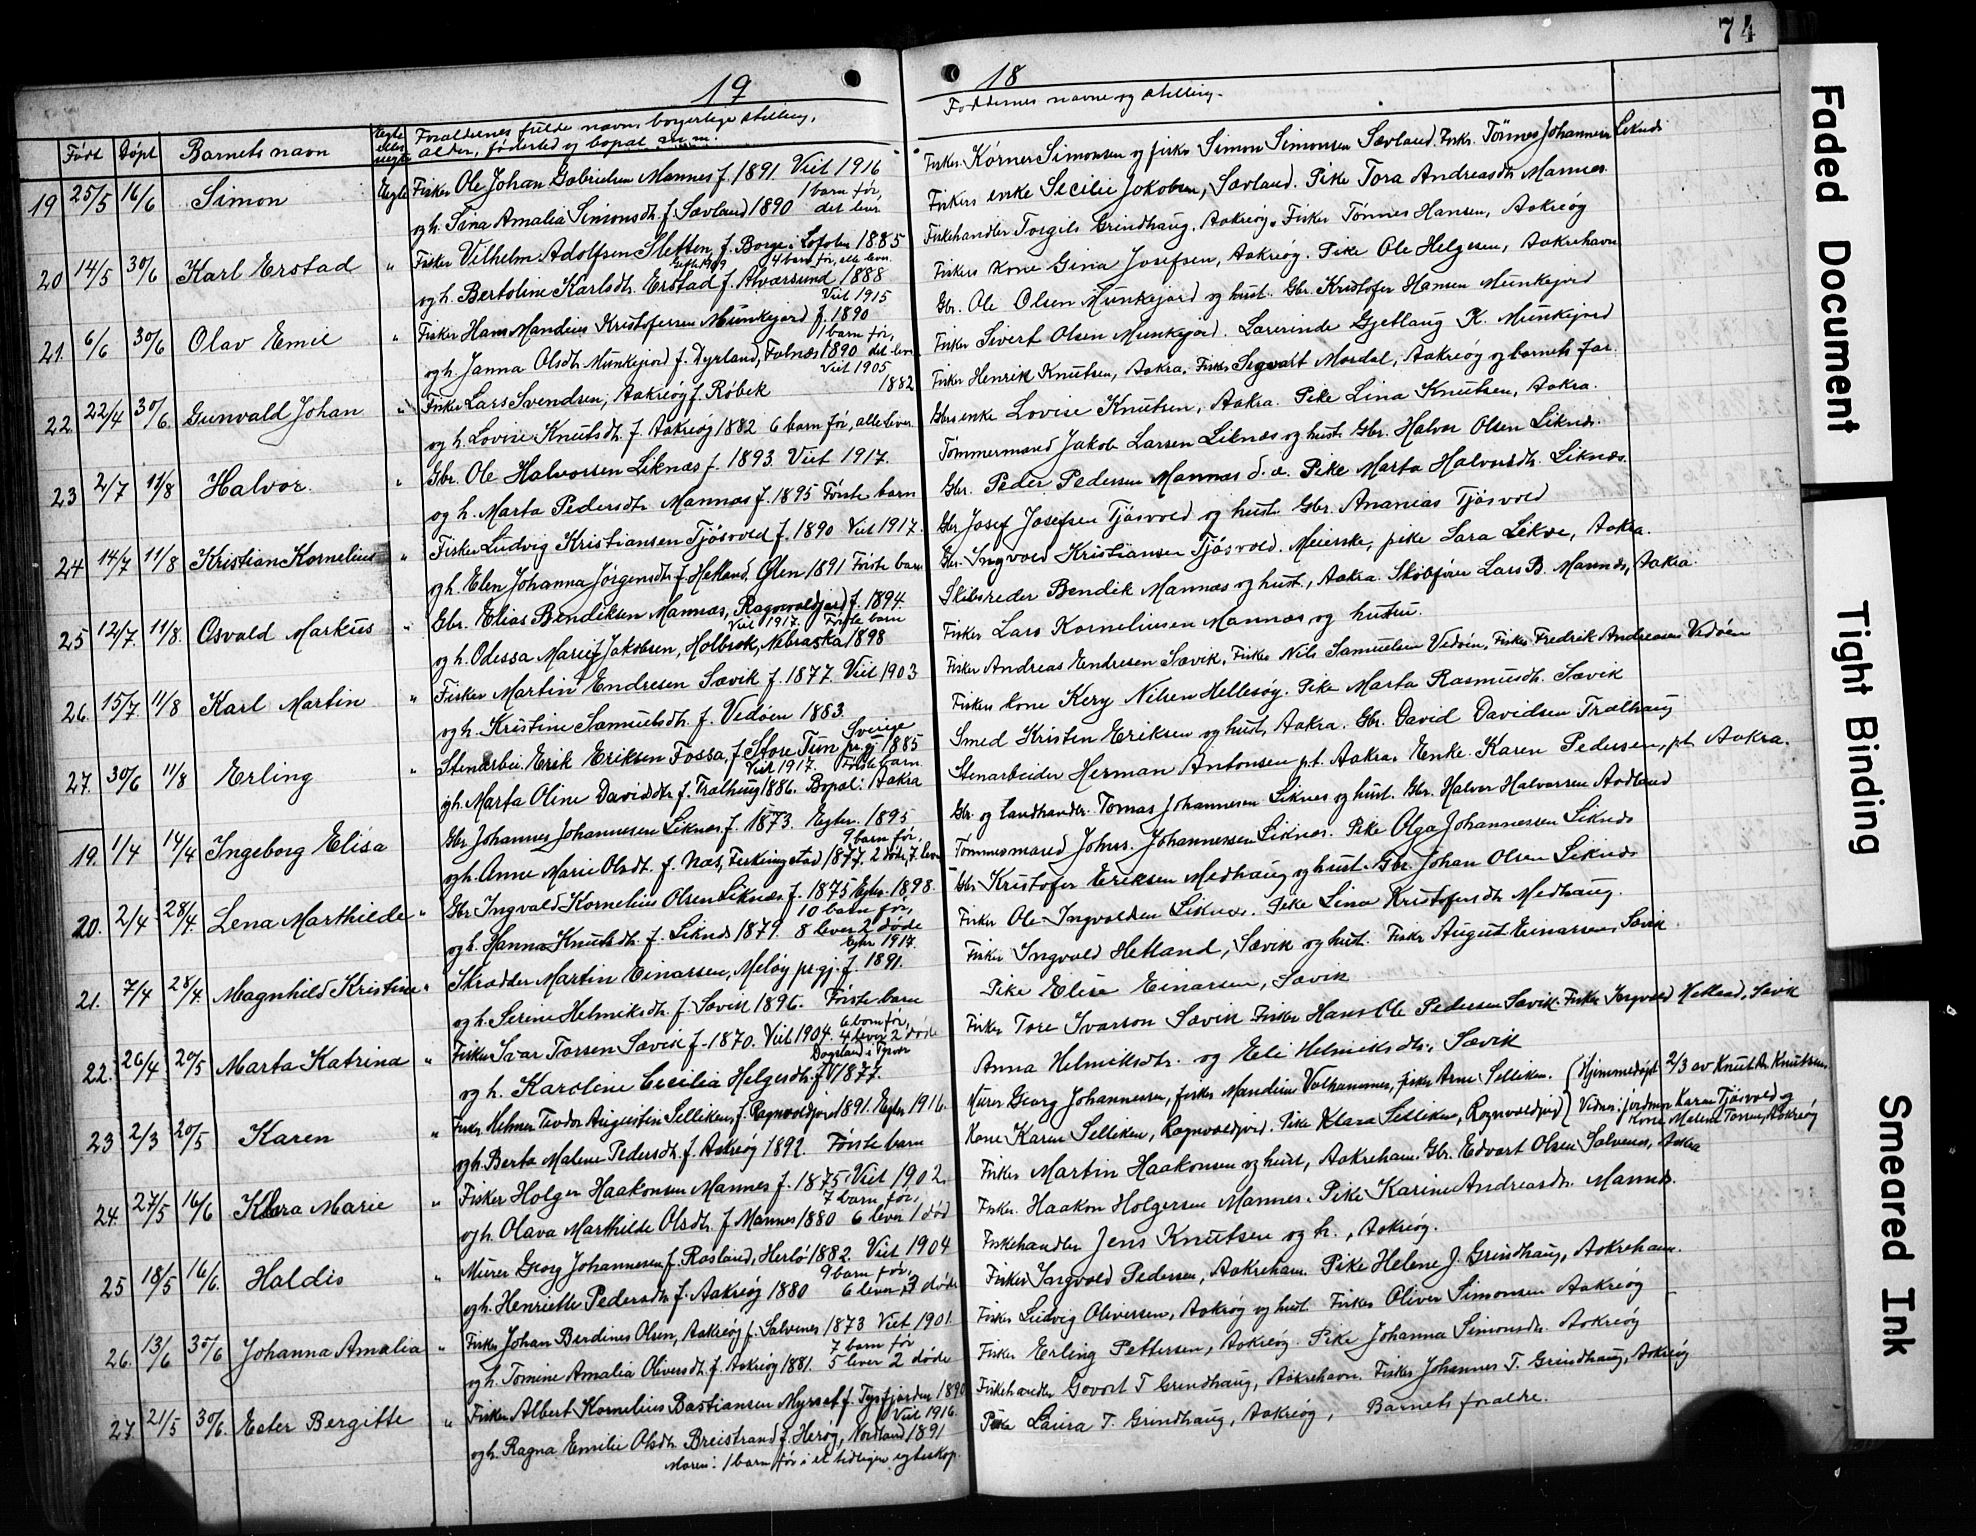 74
19 18
Født Døpt Barnets navn Egte eller uegte Forældrenes fulde navn, borgerlige stilling,
alder, fødested og bopæl m.m.
Faddernes navne og stilling.
19 25/5 16/6 Simon Egte Fisker Ole Johan Gabrielsen Mannes f. 1891 Viet 1916
og h. Sina Amalia Simonsdtr. f. Sævland 1890 1 barn før, det lever
Fisker Kørner Simonsen og fisker Simon Simonsen Sævland. Fisker Tønnes Johannesen Liknes
Fiskers enke Secilie Jakobsen, Sævland. Pike Tora Andreasdtr. Mannes.
20 14/5 30/6 Karl Erstad " Fisker Vilhelm Adolfsen Sletten f. Borge i Lofoten 1885
Gift 1909 4 barn før, alle lever.
og h. Bertoline Karlsdtr. Erstad f. Alværsund 1888
Fiskehandler Torgils Grindhaug, Aakreøg. Fisker Tønnes Hansen, Aakreøg
Fiskers kone Gina Josefsen, Aakreøg. Pike Ole Helgesen, Aakrehavn
21. 6/6 30/6 Olav Emil " Fisker Hans Mandius Kristofersen Munkejord f. 1890 Viet 1915
og h. Janna Olsdtr. Munkejord f. Dyrland, Falnæs 1890 1 barn før, det lever
Gbr. Ole Olsen Munkejord og hust. Gbr. Kristofer Hansen Munkejord
Fisker Sivert Olsen Munkejord. Lærerinde Gjetlaug K. Munkejord
22. 22/4 30/6. Gunvald Johan " Fisker Lars Svendsen, Aakreøg f. Røbek 1882 Viet 1905
og h. Lovise Knutsdtr. f. Aakreøg 1882 6 barn før, alle lever
Fisker Henrik Knutsen, Aakra. Fisker Segvart Mordal, Aakreøg og barnets far.
Gbrs enke Lovise Knutsen, Aakra. Pike Lina Knutsen, Aakra.
23 2/7 11/8 Halvor. " Gbr. Ole Halvorsen Liknæs f. 1893. Viet 1917.
og h. Marta Pedersdtr. Mannæs f. 1895 Første barn
Tømmermand Jakob Larsen Liknæs og hust. Gbr. Halvor Olsen Liknes.
Gbr. Peder Pedersen Mannæs d. æ. Pike Marta Halvorsdtr. Liknæs.
24 14/7 11/8 Kristian Kornelius " Fisker Ludvig Kristiansen Tjøsvold f. 1890 Viet 1917.
og h. Elen Johanna Jørgensdtr. f. Hetland, Ølen 1891 Første barn
Gbr. Josef Josefsen Tjøsvold og hust. Gbr. Ananias Tjøsvold
Gbr. Ingvald Kristiansen Tjøsvold. Meierske, pike Sara Likve, Aakra.
25 12/7. 11/8. Osvald Markus " Gbr. Elias Bendiksen Mannæs, Ragnvaldjord f. 1894.
Viet 1917. Første barn
og h. Odessa Marie f. Jakobsen, Holbrok, Nebraska 1898
Skibsreder Bendik Mannæs og hust., Aakra. Skibsfører Lars B. Mannæs, Aakra.
Fisker Lars Korneliusen Mannæs og hustru.
26. 15/7 11/8 Karl Martin " Fisker Martin Endresen Sævik f. 1877. Viet 1903
og h. Kristine Samuelsdtr. f. Vedøen 1883.
Fisker Andreas Endresen Sævik, Fisker Nils Samuelsen Vedøen, Fisker Fredrik Andreasen Vedøen
Fiskers kone Kery Nilsen Hellesøg. Pike Marta Rasmusdtr. Sævik
27. 30/6 11/8 Erling " Stenarbei. Erik Eriksen Fossa, f. Store Tun Sverige pr. gj. 1885
Viet 1917. Første barn.
og h. Marta Oline Davidsdtr. f. Trælhaug 1886. Bopæl: Aakra
Smed Kristen Eriksen og hust. Aakra. Gbr. David Davidsen Trælhaug
Stenarbeider Herman Antonsen p.t. Aakra. Enke Karen Pedersen, pt. Aakra.
19. 1/4 14/4 Ingeborg Elisa Gbr. Johannes Johannesen Liknæs f. 1873. Egtev. 1895
og h. Anne Marie Olsdtr. f. Næs, Ferkingstad 1877. 9 barn før, 2 døde, 7 lever
Gbr. og landhandler Tomas Johannesen Liknes og hust. Gbr. Halvor Halvorsen Aadland
Tømmermand Johns. Johannessen Liknes. Pike Olga Johannessen Liknes
20. 2/4 28/4. Lena Marthilde " Gbr. Ingvald Kornelius Olsen Liknæs f. 1875 Egtev. 1898.
og h. Hanna Knutsdtr. f. Liknes 1879. 10 barn før, 8 lever 2 døde
Gbr. Kristofer Eriksen Medhaug og hust. Gbr. Johan Olsen Liknes
Fisker Ole Ingvaldsen Liknes. Pike Lina Kristofersdtr. Medhaug.
21. 7/4 28/4. Magnhild Kristine " Skrædder Martin Einarsen, Meløy pr. gj. f. 1891. Egtev. 1917.
og h. Serine Helmiksdtr. f. Sævik 1896. Første barn
Fisker Ingvald Hetland, Sævik og hust. Fisker August Einarsen, Sævik
Pike Elise Einarsen, Sævik
22. 26/4 20/5 Marta Katrina " Fisker Ivar Torsen Sævik f. 1870. Viet 1904. 6 barn før, 4 lever 2 døde
og h. Karoline Cecilia Helgesdtr. f. Dagsland i Tysvær 1877.
Fisker Tore Ivarson Sævik. Fisker Hans Ole Pedersen Sævik. Fisker Ingvald Hetland, Sævik
Anna Helmiksdtr. og Eli Helmiksdtr., Sævik
23 2/3 20/5 Karen " Fisker Helmer Teodor Augustin Selliken, f. Ragnvaldjord 1891. Egtev. 1916.
og h. Berta Malene Pedersdtr. f. Aakreøg 1892. Første barn
Murer Georg Johannesen, fisker Mandius Valhammer, fisker Arne Selliken.
Kone Karen Selliken, Ragnvaldjord. Pike Klara Selliken, Ragnvaldjord
(Hjemmedøpt 2/3 av Knut A. Knutsen.
Vidner: jordmor Karen Tjøsvold og
kone Malene Torsen, Aakreøg
24. 27/5 16/6 Klara Marie " Fisker Holger Haakonsen Mannes f. 1875. Viet 1902.
og h. Olava Marthilde Olsdtr. f. Mannes 1880 7 barn før, 6 lever 1 død
Fisker Martin Haakonsen og hust, Aakreham. Gbr. Edvart Olsen Salvenes, Aakra
Fisker Haakon Holgersen Mannes. Pike Karine Andreasdtr. Mannes.
25 18/5 16/6. Haldis " Murer Georg Johannesen f. Rosland, Herlø 1882. Viet 1904
og h. Henriette Pedersdtr. f. Aakreøg 1880 9 barn før, 6 lever 3 døde
Fiskehandler Jens Knutsen og h., Aakreøg.
Fisker Ingvald Pedersen, Aakreham. Pike Helene J. Grindhaug, Aakreham.
26. 13/6 30/6 Johanna Amalia " Fisker Johan Berdines Olsen, Aakreøg f. Salvenes 1873 Viet 1901
og h. Tomine Amalia Oliversdtr. f. Aakreøg 1881. 7 barn før 5 lever 2 døde
Fisker Ludvig Oliversen, Aakrøg og hust. Fisker Oliver Simonsen Aakreøg
Fisker Erling Pettersen, Aakreøg. Pike Johanna Simonsdtr. Aakreøg
27. 21/5 30/6. Ester Bergitte " Fisker Albert Kornelius Bastiansen Myrset f. Tysfjorden 1890
Viet 1916.
og h. Ragna Emilie Olsdtr. Breistrand f. Herøg, Nordland 1891
Moren: 1 barn før i et tidligere egteskap.
Fiskehandler Govort T Grindhaug, Aakrehavn. Fisker Johannes T. Grindhaug, Aakreøg
Pike Laura T. Grindhaug, Aakreøg, Barnets forældre.
Faded Document
Tight Binding
Smeared Ink